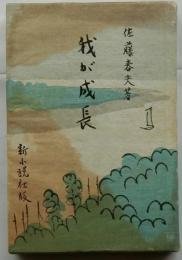 佐藤春夫著
我が成長
新小説社版